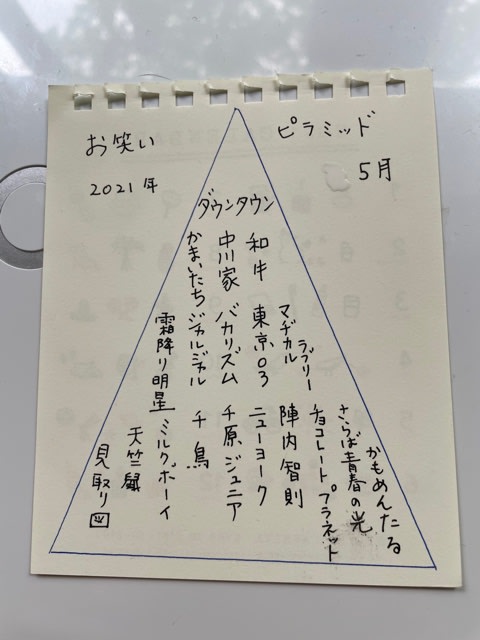 お笑い ピラミッド
2021年 5月
ダウンタウン
和牛 東京03 ニューヨーク
中川家 バカリズム 千原ジュニア
かまいたち ジャルジャル 千鳥
マヂカルラブリー 陣内智則
チョコレートプラネット
さらば青春の光
かもめんたる
霜降り明星 ミルクボーイ
天竺鼠
見取り図